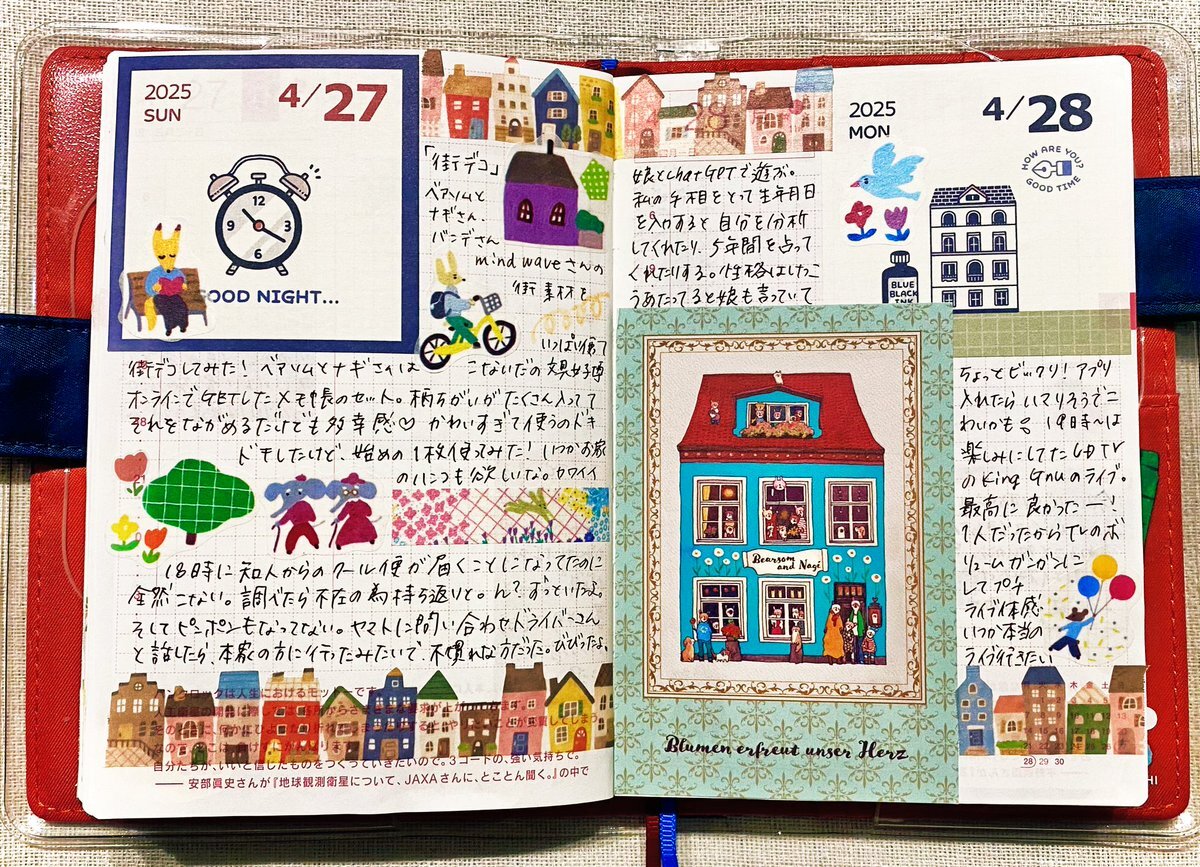 2025
SUN
4/27
OOD NIGHT...
12
10
2
9
3
6
「街デコ」
ベアソムと
ナギさん.
バンデさん
mind waveさんの
街 素材を
いっぱい使って
街デコしてみた！ベアソムとナギさんは こないだの文具女子博
オンラインでGETしたメモ帳のセット。柄ちがいがたくさん入ってて
それをながめるだけでも多幸感♡ かわいすぎて使うのドキ
ドキしたけど、始めの1枚使ってみた！いつかお家
のいっこも欲しいな。カワイイ
18時に知人からのクール便が届くことになってたのに
全然こない。調べたら不在の為持ち返りと。ん？ずっといたよ。
そしてピンポンもなってない。ヤマトに問い合わせドライバーさん
と話したら、本家の方に行ったみたいで、不慣れな方だった。びびったよ。
自分たちが、いいと信じたものをつくっていきたいので。3コードの、強い気持ちで。
—— 安部眞史さんが『地球観測衛星について、JAXAさんに、とことん聞く。』の中で
2025
MON
4/28
HOW ARE YOU?
GOOD TIME
BLUE
BLACK
INK
娘とChatGPTで遊ぶ。
私の手相をとって生年月日
を入力すると自分を分析
してくれたり、5年間を占って
くれたりする。性格はけっこ
うあたってると娘も言っていて
ちょっとビックリ！アプリ
入れたらハマりそうでこ
わいかも 19時〜は
楽しみにしてたCDTV
のKing Gnuのライブ。
最高に良かったー！
1人だったからTVのボ
リュームガンガンに
してプチ
ライブ体感
いつか本当の
ライブ行きたい
Bearsom
and Nagi
Blumen erfreut unser Herz
木 金 土
28 29 30
HI